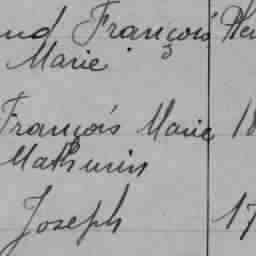 and François
Marie
François Marie 18
Mathurin
Joseph 17